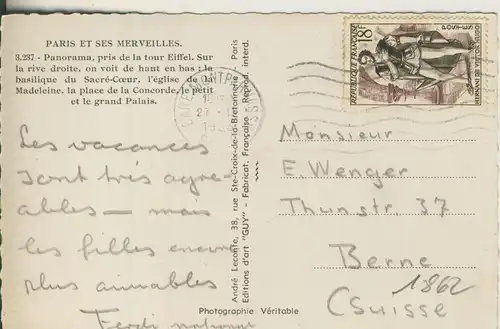 PARIS ET SES MERVEILLES.
3.237 - Panorama, pris de la tour Eiffel. Sur
la rive droite, on voit de haut en bas : la
basilique du Sacré-Cœur, l'église de la
Madeleine, la place de la Concorde, le petit
et le grand Palais.
Les vacances
sont très agre-
ables — mais
les filles encore
plus aimables
Ferdi
André Leconte, 38, rue Ste-Croix-de-la-Bretonnerie - Paris
Editions d'art "GUY" - Fabricat. Française - Reprod. interd.
Photographie Véritable
REPUBLIQUE FRANÇAISE
18F
POSTES
HERNANI DE VICTOR HUGO
Monsieur
E. Wenger
Thunstr. 37
Berne
(Suisse
1862